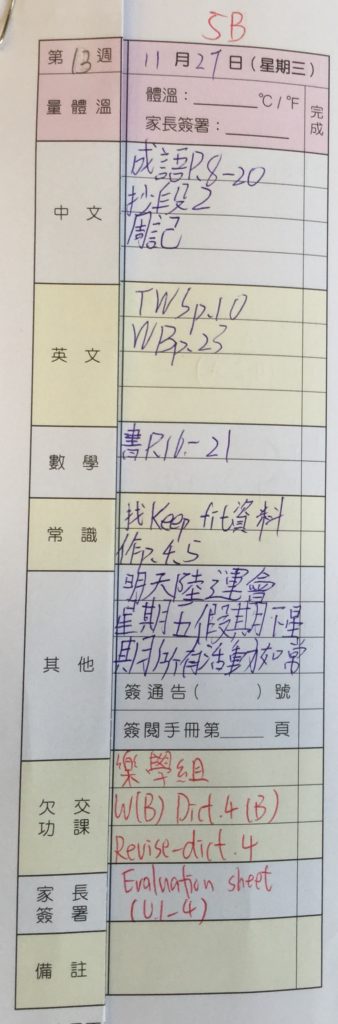 5B
第13週 11月27日(星期三)
量體溫 體溫:______ °C/°F 完成
家長簽署:______
中文 成語P.8-20
抄段2
周記
英文 TWSp.10
WBp.23
數學 書P.16-21
常識 找Keep fit資料
作p.4.5
其他 明天陸運會
星期五假期下星
期所有活動如常
簽通告( )號
簽閱手冊第____頁
欠交功課 樂學組
W(B) Dict.4(B)
Revise-dict.4
家長簽署 Evaluation sheet
(U.1-4)
備註